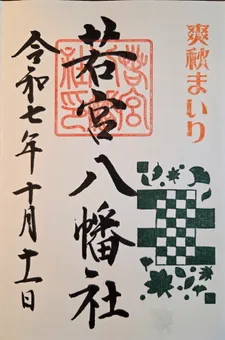 爽秋まいり
若宮八幡社
令和七年十月十一日